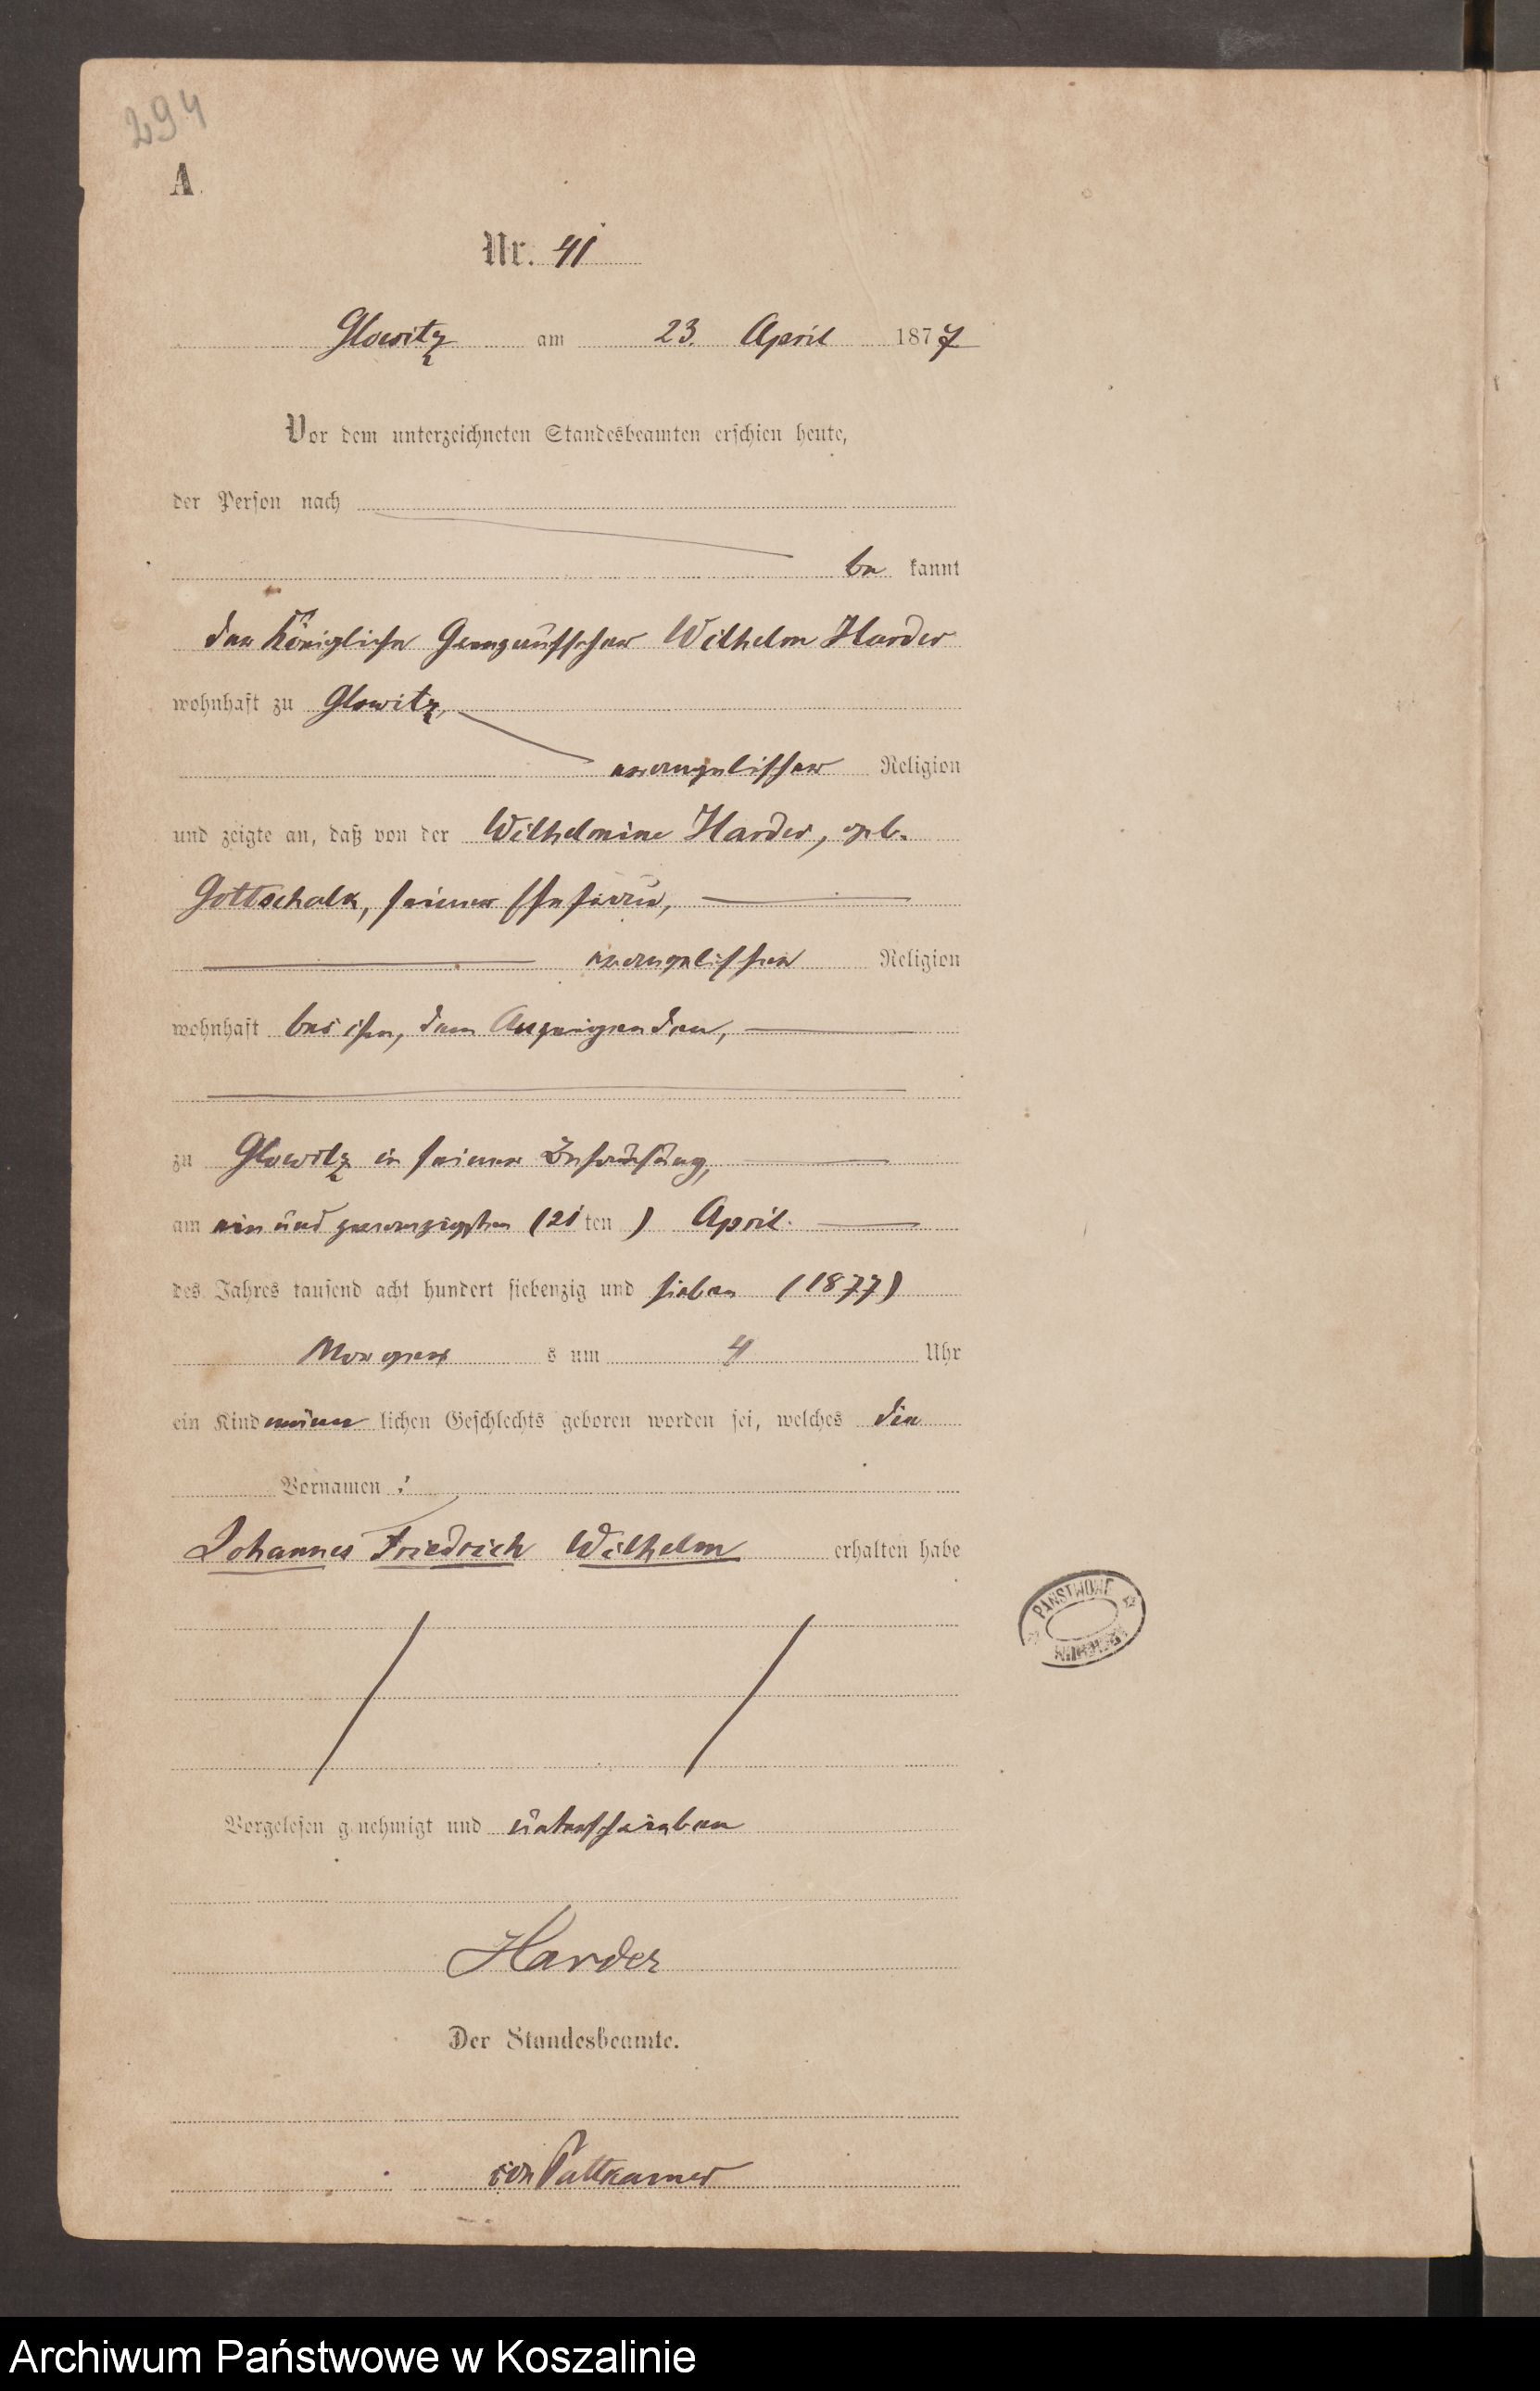 294
A.
Nr. 41
Glowitz am 23. April 1877
Vor dem unterzeichneten Standesbeamten erschien heute,
der Person nach
be kannt
der Königliche Grenzaufseher Wilhelm Harder
wohnhaft zu Glowitz,
evangelischer Religion
und zeigte an, daß von der Wilhelmine Harder, geb.
Gottschalk, seiner Ehefrau,
evangelischer Religion
wohnhaft bei ihm, dem Anzeigenden,
zu Glowitz in seiner Behausung,
am ein und zwanzigsten (21 ten) April
des Jahres tausend acht hundert siebenzig und sieben (1877)
Morgens s um 4 Uhr
ein Kind männ lichen Geschlechts geboren worden sei, welches die
Vornamen :
Johannes Friedrich Wilhelm erhalten habe
PAŃSTWOWE
ARCHIWUM
Vorgelesen genehmigt und unterschrieben
Harder
Der Standesbeamte.
von Puttkamer
Archiwum Państwowe w Koszalinie